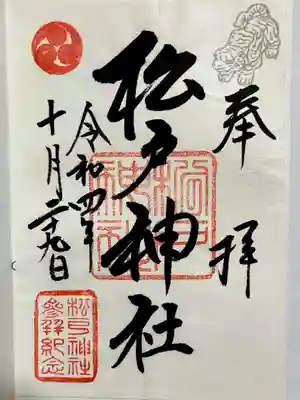 奉拝
松戸神社
令和四年
十月二十九日
松戸神社
松戸神社
参拝紀念